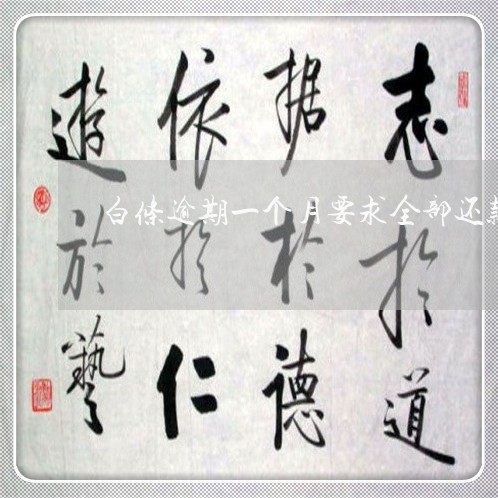 志於道
据於德
依於仁
遊於藝
白條逾期一个月要求全部还款